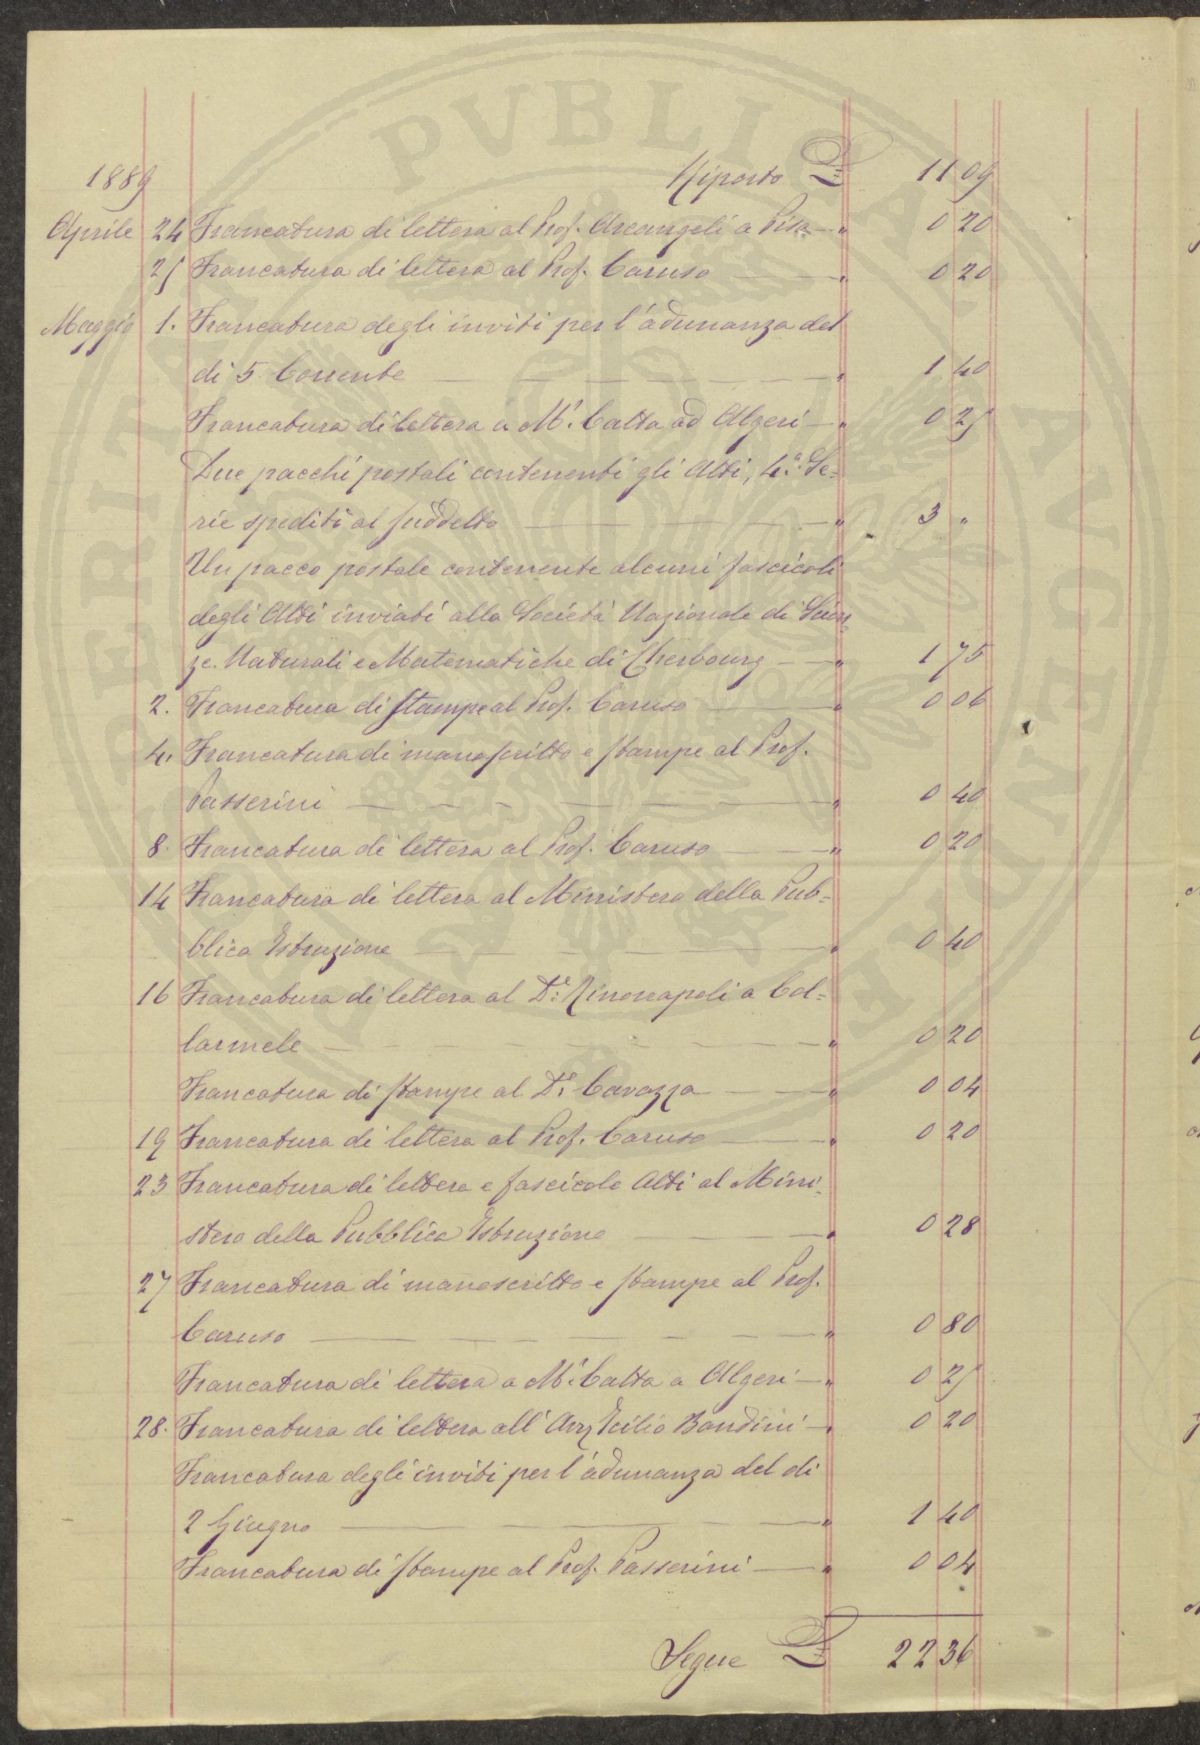 PVBLICA
1889 Riporto £ 11 09
Aprile 24 Francatura di lettera al Prof. Arcangeli a Pisa — " 0 20
25 Francatura di lettera al Prof. Caruso — " 0 20
Maggio 1. Francatura degli inviti per l'adunanza del
di 5 Corrente — " 1 40
Francatura di lettera a Mr. Catta ad Algeri — " 0 25
Due pacchi postali contenenti gli Atti, 4.a Se=
rie spediti al suddetto — " 3 "
Un pacco postale contenente alcuni fascicoli
degli Atti inviati alla Società Nazionale di Scien=
ze Naturali e Matematiche di Cherbourg — " 1 75
2. Francatura di stampe al Prof. Caruso — " 0 06
4. Francatura di manoscritto e stampe al Prof.
Passerini — " 0 40
8. Francatura di lettera al Prof. Caruso — " 0 20
14 Francatura di lettera al Ministero della Pub=
blica Istruzione — " 0 40
16 Francatura di lettera al Dr. Rinoncapoli a Col=
larmele — " 0 20
Francatura di stampe al Dr. Cavazza — " 0 04
19 Francatura di lettera al Prof. Caruso — " 0 20
23 Francatura di lettera e fascicolo Atti al Mini=
stero della Pubblica Istruzione — " 0 28
27 Francatura di manoscritto e stampe al Prof.
Caruso — " 0 80
Francatura di lettera a Mr. Catta a Algeri — " 0 25
28. Francatura di lettera all' Avv. Icilio Bandini — " 0 20
Francatura degli inviti per l'adunanza del di
2 Giugno — " 1 40
Francatura di stampe al Prof. Passerini — " 0 04
Segue £ 22 36